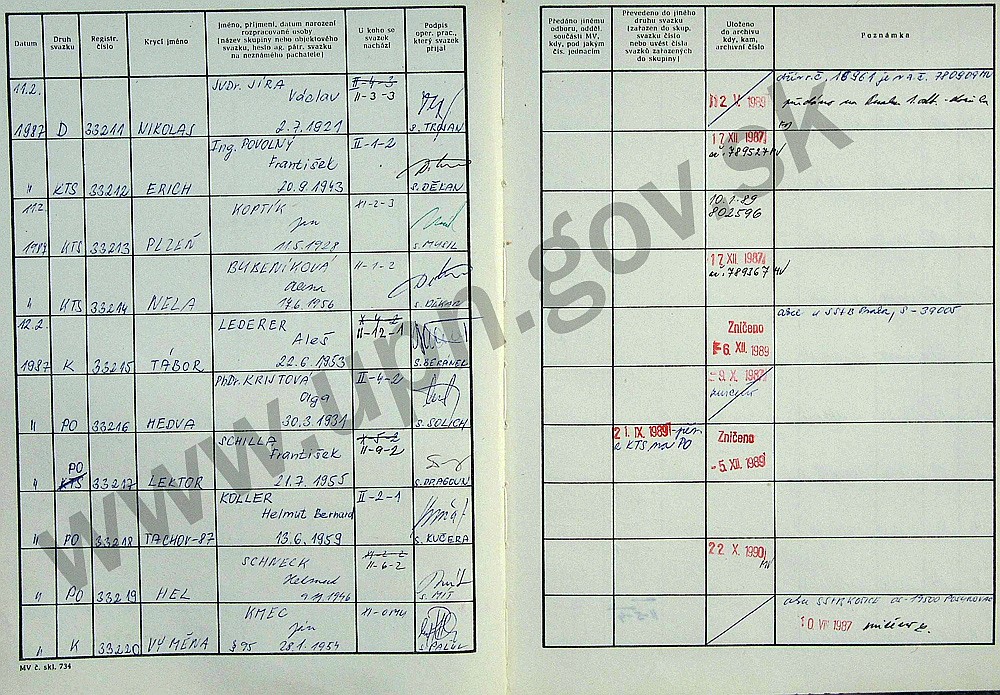 Datum
Druh svazku
Registr. číslo
Krycí jméno
Jméno, příjmení, datum narození rozpracované osoby (název skupiny nebo objektového svazku, heslo ag. pátr. svazku na neznámého pachatele)
U koho se svazek nachází
Podpis oper. prac., který svazek přijal
Předáno jinému odboru, odděl. součásti MV, kdy, pod jakým čís. jednacím
Převedeno do jiného druhu svazku (zařazen do skup. svazku číslo nebo uvést čísla svazků zařazených do skupiny)
Uloženo do archivu kdy, kam, archivní číslo
Poznámka
11.2. JUDr. JÍRA II-4-3
Václav II-3-3
1987 D 33211 NIKOLAS 2.7.1921 s. TROJAN
2 V. 1989
Ing. POVOLNÝ II-1-2
František
" KTS 33212 ERICH 20.9.1943 s. DĚKAN
17 XII. 1987
789527 MV
11.2. KOPTÍK XI-2-3
Jan
1987 KTS 33213 PLZEŇ 11.5.1928 s. MYSIL
10.1.89
802596
BUBENÍKOVÁ II-1-2
Alena
" KTS 33214 NELA 14.6.1956 s. DĚKAN
17 XII. 1987
789367 MV
12.2. LEDERER X-4-2
Aleš II-12-1
1987 K 33215 TÁBOR 22.6.1953 s. BERANEK
Zničeno
-6. XII. 1989
PhDr. KRISTOVA II-4-2
Olga
" PO 33216 HEDVA 30.3.1931 s. SOLICH
-9. X. 1987
SCHILLA X-5-2
PO František II-9-2
" KTS 33217 LEKTOR 21.7.1955 s. DRAGOUN
21. IX. 1989
z KTS na PO
Zničeno
-5. XII. 1989
KOLLER II-2-1
Helmut Bernard
" PO 33218 TACHOV-87 13.6.1959 s. KUČERA
SCHNECK XI-2-2
Helmut II-6-2
" PO 33219 HEL 9.11.1946 s. MIT
22 X. 1990
MV
KMEC XI-OMU
Ján
" K 33220 VÝMĚNA §95 28.1.1954
10 VII 1987
MV č. skl. 734
www.upn.gov.sk